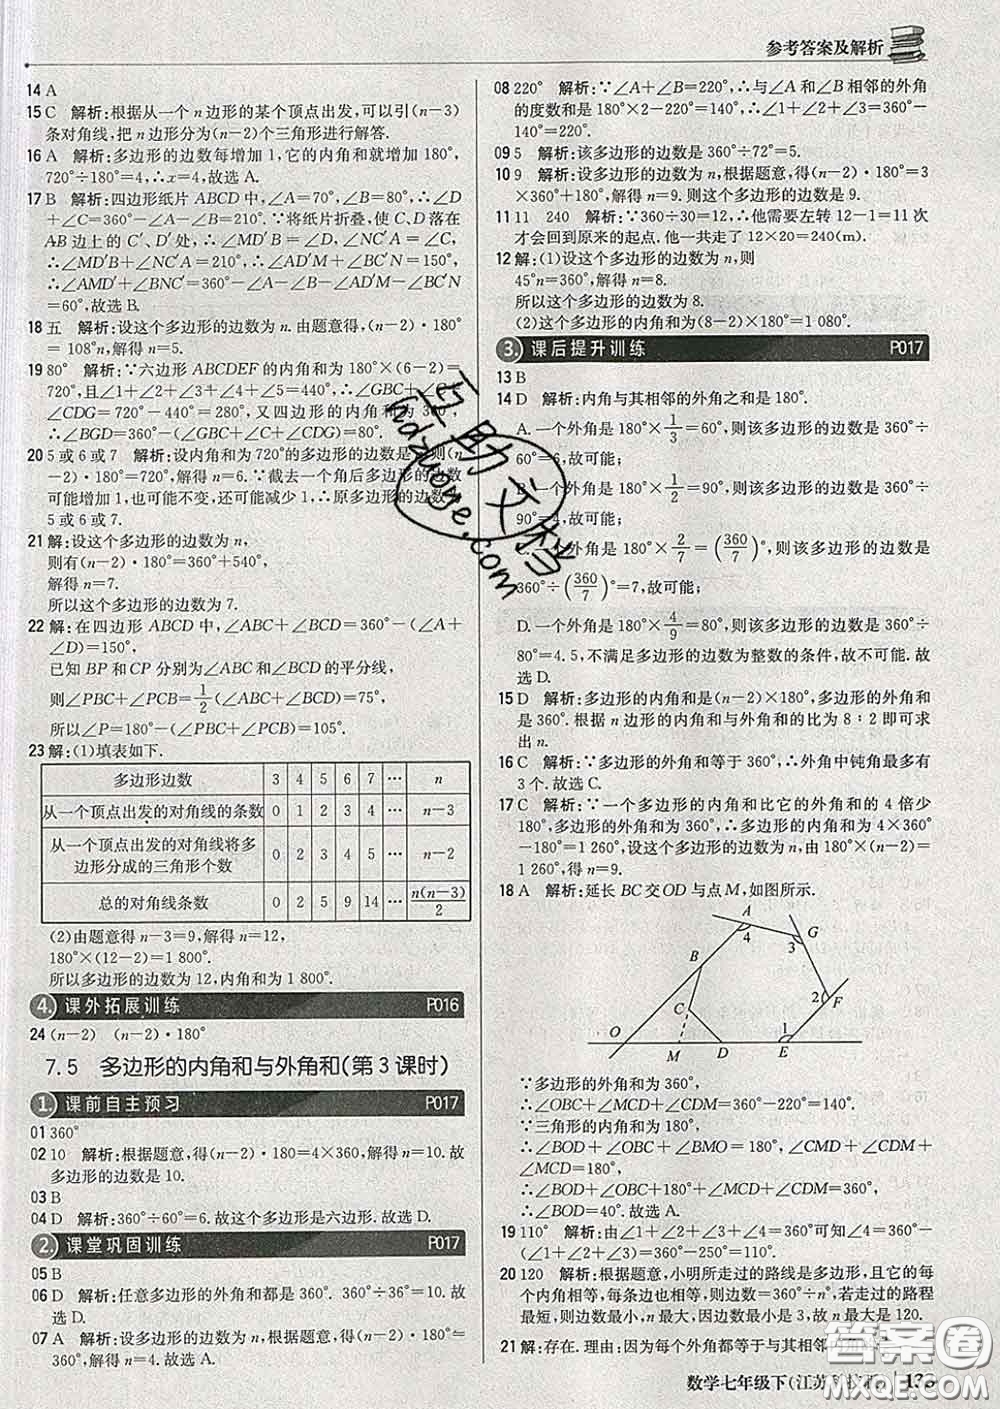 参考答案及解析
14 A
15 C 解析:根据从一个 n边形的某个顶点出发,可以引(n−3)
条对角线,把 n边形分为(n−2)个三角形进行解答.
16 A 解析:多边形的边数每增加 1,它的内角和就增加 180°,
720°÷180°=4,∴x=4,故选 A.
17 B 解析:四边形纸片 ABCD 中,∠A=70°,∠B=80°,∴∠D
+∠C=360°−∠A−∠B=210°.∵将纸片折叠,使 C、D 落在
AB 边上的 C′、D′处,∴∠MD′B=∠D,∠NC′A=∠C,
∴∠MD′B+∠NC′A=210°,∴∠AD′M+∠BC′N=150°,
∴∠AMD′+∠BNC′=360°−∠A−∠B−∠AD′M−∠BC′N
=60°,故选 B.
18 五 解析:设这个多边形的边数为 n.由题意得,(n−2)·180°
=108°n,解得 n=5.
19 80° 解析:∵六边形 ABCDEF 的内角和为 180°×(6−2)=
720°,且∠1+∠2+∠3+∠4+∠5=440°,∴∠GBC+∠C
+∠CDG=720°−440°=280°,又四边形的内角和为 360°,
∴∠BGD=360°−(∠GBC+∠C+∠CDG)=80°.
20 5 或 6 或 7 解析:设内角和为 720°的多边形的边数是 则(n
−2)·180°=720°,解得 n=6.∵截去一个角后多边形的边数
可能增加 1,也可能不变,还可能减少 1,∴原多边形的边数为
5 或 6 或 7.
21 解:设这个多边形的边数为 n,
则有(n−2)·180°=360°+540°,
解得 n=7.
所以这个多边形的边数为 7.
22 解:在四边形 ABCD 中,∠ABC+∠BCD=360°−(∠A+
∠D)=150°,
已知 BP 和 CP 分别为∠ABC 和∠BCD 的平分线,
则∠PBC+∠PCB=1/2(∠ABC+∠BCD)=75°,
所以∠P=180°−(∠PBC+∠PCB)=105°.
23 解:(1)填表如下.
多边形边数 3 4 5 6 7 … n
从一个顶点出发的对角线的条数 0 1 2 3 4 … n−3
从一个顶点出发的对角线将多
边形分成的三角形个数 0 2 3 4 5 … n−2
总的对角线条数 0 2 5 9 14 … n(n−3)/2
(2)由题意得 n−3=9,解得 n=12,
180°×(12−2)=1 800°.
所以多边形的边数为 12,内角和为 1 800°.
4. 课外拓展训练 P016
24 (n−2) (n−2)·180°
7.5 多边形的内角和与外角和(第 3 课时)
1. 课前自主预习 P017
01 360°
02 10 解析:根据题意,得(n−2)·180=4×360,解得 n=10.故
多边形的边数是 10.
03 B
04 D 解析:360°÷60°=6.故这个多边形是六边形.故选 D.
2. 课堂巩固训练 P017
05 B
06 D 解析:任意多边形的外角和都是 360°.
选 D.
07 A 解析:设多边形的边数为 n,根据题意,得(n−2)·180°=
360°,解得 n=4.故选 A.
08 220° 解析:∵∠A+∠B=220°,∴与∠A 和∠B 相邻的外角
的度数和是 180°×2−220°=140°,∴∠1+∠2+∠3=360°−
140°=220°.
09 5 解析:该多边形的边数是 360°÷72°=5.
10 9 解析:设多边形的边数为 n,根据题意,得(n−2)·180°=3
×360°+180°,解得 n=9.则这个多边形的边数是 9.
11 11 240 解析:∵360÷30=12,∴他需要左转 12−1=11 次
才会回到原来的起点.他一共走了 12×20=240(m).
12 解:(1)设这个多边形的边数为 n,则
45°n=360°,解得 n=8.
所以这个多边形的边数为 8.
(2)这个多边形的内角和为(8−2)×180°=1 080°.
3. 课后提升训练 P017
13 B
14 D 解析:内角与其相邻的外角之和是 180°.
A.一个外角是 180°×1/3=60°,则该多边形的边数是 360°÷
60°=6,故可能;
B.一个外角是 180°×1/2=90°,则该多边形的边数是 360°÷
90°=4,故可能;
一个外角是 180°×2/7=(360/7)°,则该多边形的边数是
360°÷(360/7)°=7,故可能;
D.一个外角是 180°×4/9=80°,则该多边形的边数是 360°÷
80°=4.5,不满足多边形的边数为整数的条件,故不可能.故
选 D.
15 D 解析:多边形的内角和是(n−2)×180°,多边形的外角和
是 360°.根据 n 边形的内角和与外角和的比为 8∶2 即可求
出 n.
16 C 解析:∵多边形的外角和等于 360°,∴外角中钝角最多有
3 个.故选 C.
17 C 解析:∵一个多边形的内角和比它的外角和的 4 倍少
180°,多边形的外角和为 360°,∴多边形的内角和为 4×360°
−180°=1 260°,设这个多边形的边数为 n,由题意得(n−2)×180°=
1 260°,解得 n=9.
18 A 解析:延长 BC 交 OD 与点 M,如图所示.
A
G
4
3
B
C
2
F
O
1
M D E
∵多边形的外角和为 360°,
∴∠OBC+∠MCD+∠CDM=360°−220°=140°.
∵三角形的内角和为 180°,
∴∠BOD+∠OBC+∠BMO=180°,∠CMD+∠CDM+
∠MCD=180°,
∴∠BOD+∠OBC+∠MCD+∠CDM=180°,
∴∠BOD=40°.故选 A.
19 110° 解析:由∠1+∠2+∠3+∠4=360°可知∠5=360°−
(∠1+∠2+∠3+∠4)=360°−250°=110°.
20 120 解析:根据题意,小明所走过的路线是多边形,且它的每
个内角相等,每条边也相等,则边数=360°÷n°,若走过的路程
最短,则边数最小,n 最大,因边数最小是 3,故 n 最大是 120.
21 解:存在.理由:因为每个外角都等于与其相邻
数学七年级下(江苏
互助文档
hdzuoye.com
答案圈